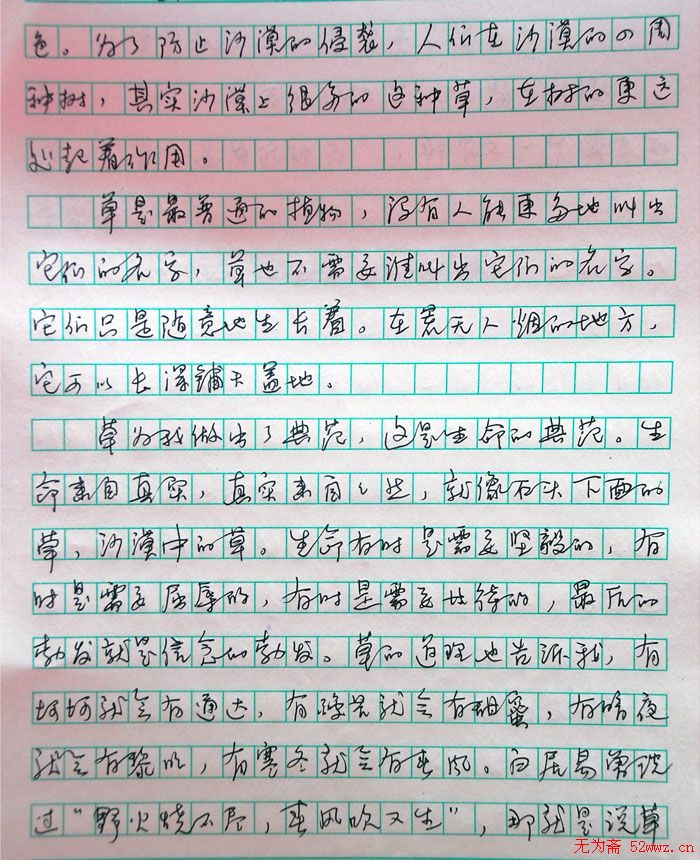 色。为了防止沙漠的侵袭，人们在沙漠的四周
种树，其实沙漠上很多的是种草，在树的更远
处起着作用。
草是最普通的植物，没有人能更多地叫出
它们的名字，草也不需要谁叫出它们的名字。
它们只是随意地生长着。在荒无人烟的地方，
它可以长满铺天盖地。
草为我做出了典范，这是生命的典范。生
命来自真实，真实来自自然，就像石头下面的
草，沙漠中的草。生命有时是需要坚毅的，有
时是需要屈辱的，有时是需要等待的，最后的
勃发就是信念的勃发。草的道理也告诉我，有
坎坷就会有通达，有辛苦就会有甜蜜，有暗夜
就会有黎明，有寒冬就会有春风。白居易曾说
过“野火烧不尽，春风吹又生”，那就是说草
无为斋 52wwz.cn